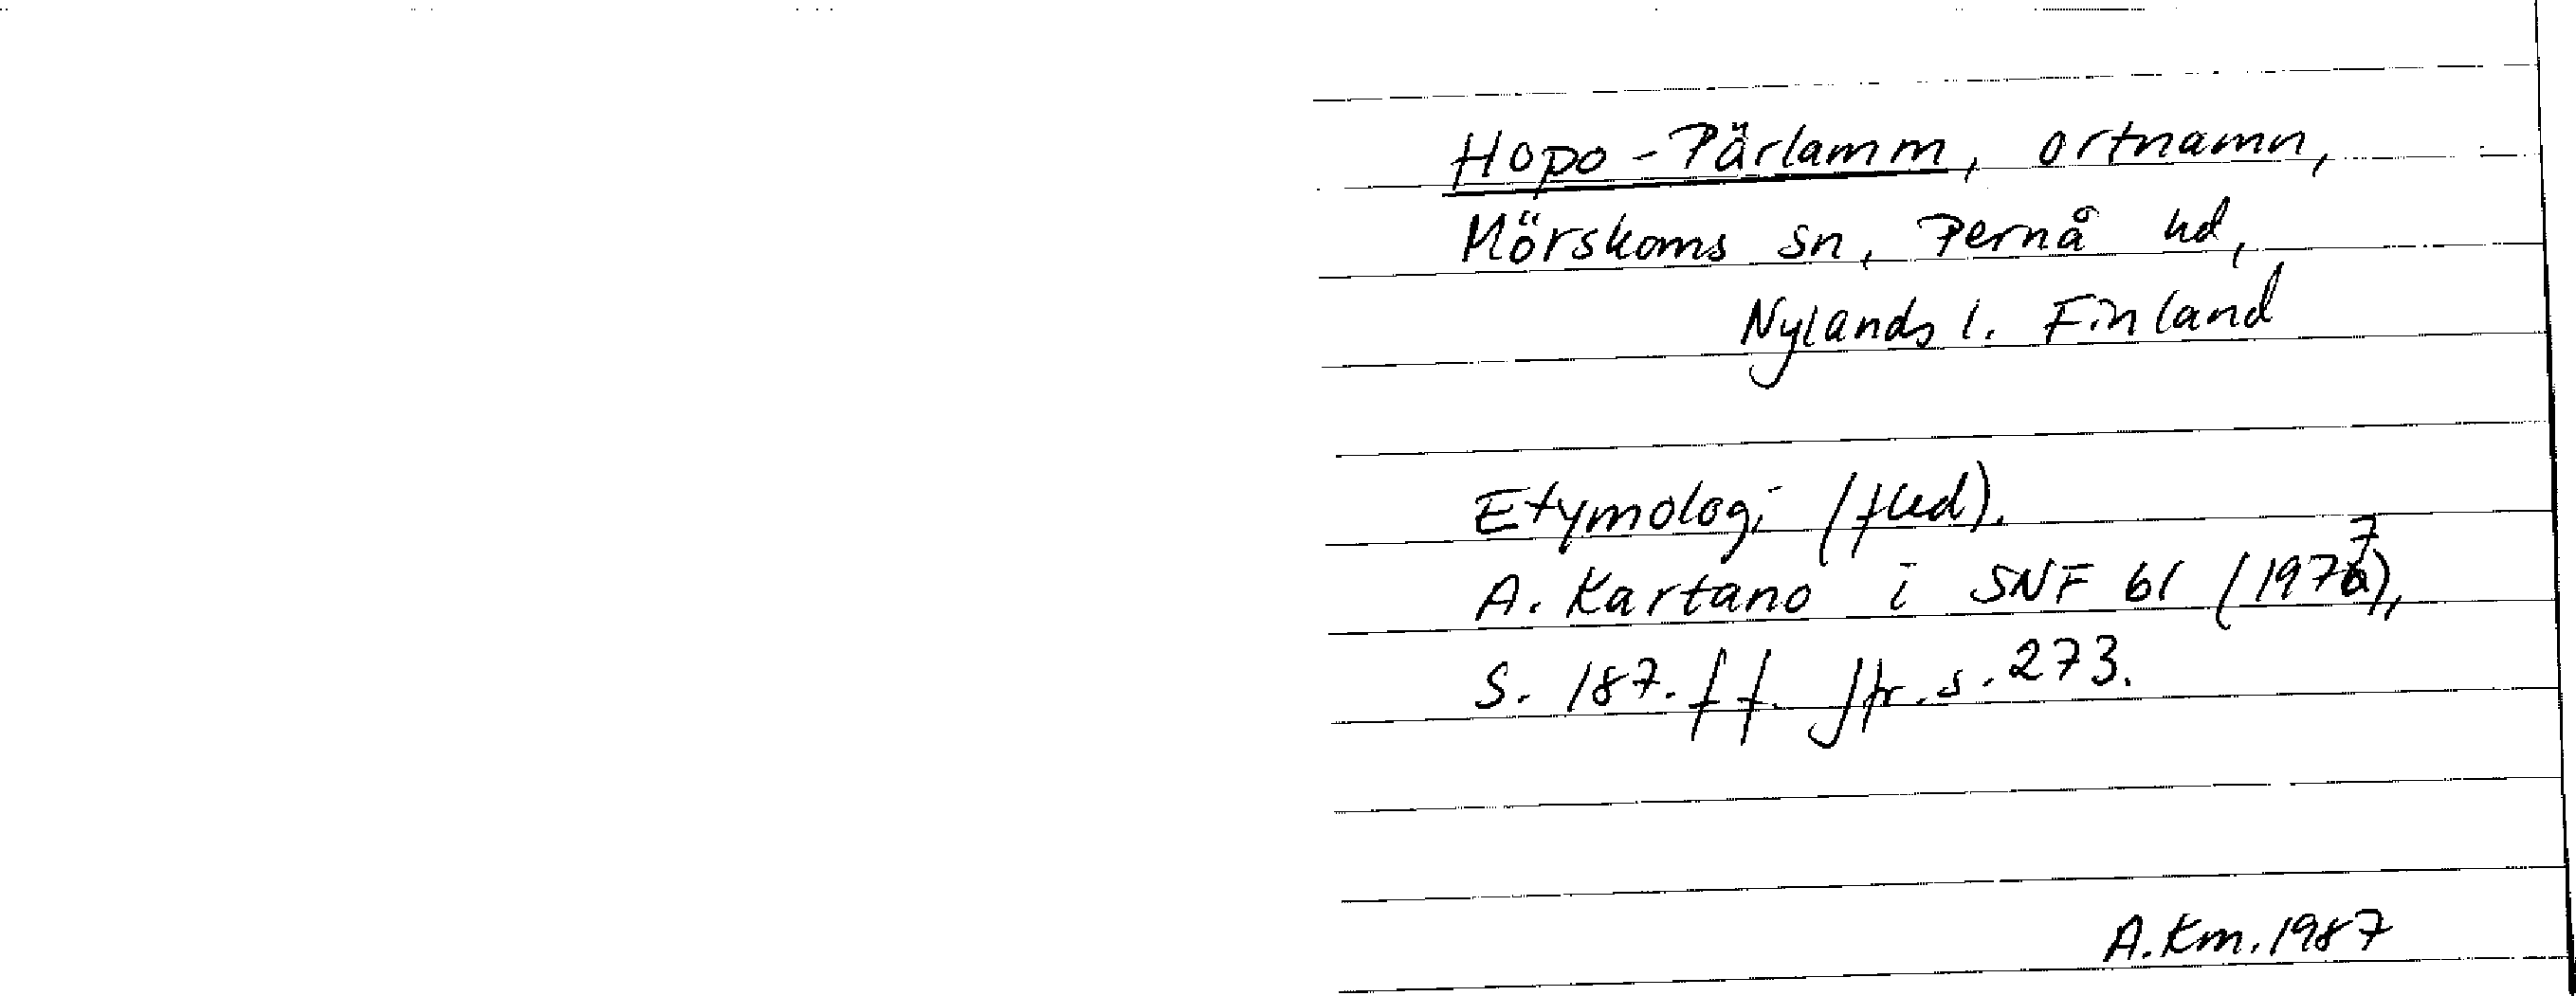 Hopo-Pärlamm, ortnamn,
Mörskoms sn, Pernå hd,
Nylands l. Finland
Etymologi (fled).
A. Kartano i SNF 61 (1977),
S. 187. ff. Jfr. s. 273.
A.Km. 1987